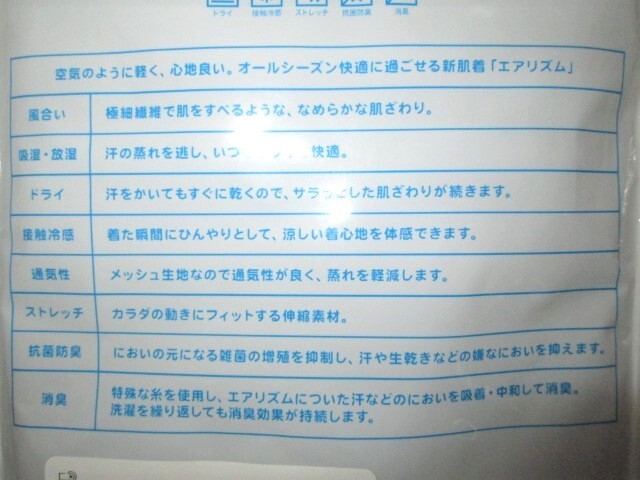 ドライ 接触冷感 ストレッチ 抗菌防臭 消臭
空気のように軽く、心地良い。オールシーズン快適に過ごせる新肌着「エアリズム」
風合い 極細繊維で肌をすべるような、なめらかな肌ざわり。
吸湿・放湿 汗の蒸れを逃し、いつ 快適。
ドライ 汗をかいてもすぐに乾くので、サラッとした肌ざわりが続きます。
接触冷感 着た瞬間にひんやりとして、涼しい着心地を体感できます。
通気性 メッシュ生地なので通気性が良く、蒸れを軽減します。
ストレッチ カラダの動きにフィットする伸縮素材。
抗菌防臭 においの元になる雑菌の増殖を抑制し、汗や生乾きなどの嫌なにおいを抑えます。
消臭 特殊な糸を使用し、エアリズムについた汗などのにおいを吸着・中和して消臭。
洗濯を繰り返しても消臭効果が持続します。